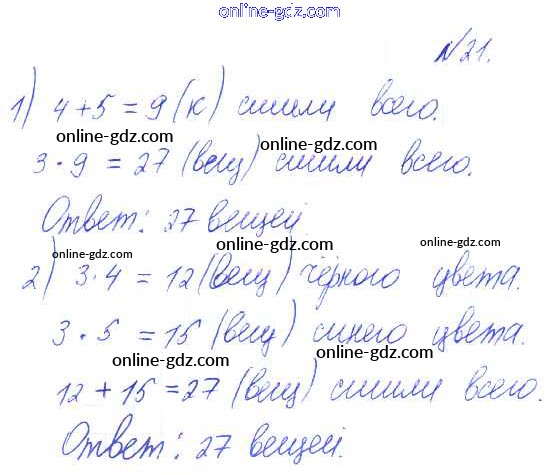 online-gdz.com
№21.
1) 4+5=9 (к) сшили всего.
online-gdz.com online-gdz.com
3·9=27 (вещ) сшили всего.
Ответ: 27 вещей
online-gdz.com online-gdz.com online-gdz.com
2) 3·4=12 (вещ) чёрного цвета.
3·5=15 (вещ) синего цвета.
online-gdz.com online-gdz.com
12+15=27 (вещ) сшили всего.
Ответ: 27 вещей.
online-gdz.com